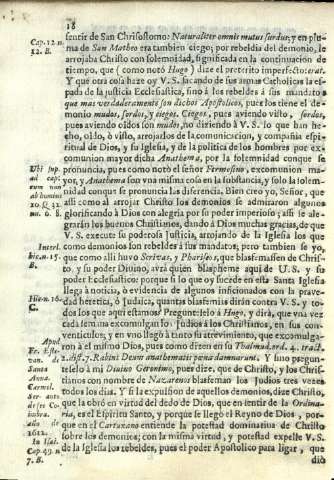 18
sentir de San Chrisostomo: Naturaliter omnis mutus surdus; y en plu-
ma de San Matheo era tambien ciego; por rebeldia del demonio, le
arrojaba Christo con solemnidad, significada en la continuacion de
tiempo, que (como notò Hugo) dize el preterito imperfecto: erat.
Y que otra cosa haze oy V. S. sacando de sus aras Catholicas la es-
pada de la justicia Ecclesiastica, sino à los rebeldes à sus mandatos
que mas verdaderamente son dichos Apostolicos, pues los tiene el de-
monio mudos, sordos, y ciegos. Ciegos, pues aviendo visto, sordos,
pues aviendo oìdos son mudos, no diriendo à V. S. lo que han he-
cho, oìdo, ò visto, arrojarlos de la comunicacion, y compañia espi-
ritual de Dios, y su Iglesia, y de la politica de los hombres por ex-
comunion mayor dicha Anathema, por la solemnidad conque se
pronuncia, pues como notò el señor Fermosino, excomunion ma-
yor, y Anathema son vna misma cosa en la substancia, y solo la solem-
nidad conque se pronuncia las diferencia. Bien creo yo, Señor, que
assi como al arrojar Christo los demonios se admiraron algunos
glorificando à Dios con alegria por su poder imperioso; assi se ale-
graràn los buenos Christianos, dando à Dios muchas gracias, de que
V. S. execute su poderosa justicia, arrojando de la Iglesia los que
como demonios son rebeldes à sus mandatos; pero tambien se yo,
que como allì huvo Scrivas, y Phariseos, que blasfemassen de Chris-
to, y su poder Divino, avrà quien blaspheme aqui de U. S. y su
poder Ecclesiastico: porque si lo que oy sucede en esta Santa Iglesia
llega à noticia, ò evidencia de algunos inficionados con la prave-
dad heretica, ò Judaica, quantas blasfemias diràn contra V. S. y to-
dos los que aqui estamos? Preguntèselo à Hugo, y dirà, que vna vez
cada semana excomulgan los Judios à los Christianos, en sus con-
venticulos; y en vno llegò à tanto su atrevimiento, que excomulga-
ron à el mismo Dios, pues como dizen en su Thalmud. ord. 4. tract.
2. dist. 7. Rabini Deum anathematis pœna damnarunt. Y sino pregun-
teselo à mi Divino Geronimo, pues dize, que de Christo, y los Christi-
anos con nombre de Nazarenos blasfeman los Judios tres vezes
todos los dias. Y si la expulsion de aquellos demonios, dize Christo,
que la obrò en virtud del dedo de Dios, que en sentir de la Ordina-
ria, es el Espiritu Santo, y porque se llegò el Reyno de Dios, por-
que en el Cartuxano entiende la potestad dominativa de Christo
sobre los demonios; con la misma virtud, y potestad expele V. S.
de la Iglesia los rebeldes, pues el poder Apostolico para ligar, que
diò
Cap. 12. n.
22. B.
Ubi sup.
ad cap. si
eum non
ab homine
10. Q. 12.
nu. 6. 8.
Interl.
hic. n. 15.
B.
Hic n. 16.
C.
Apud
Fr. Estev-
van. de
Santa
Anna.
Carmel.
Ser. auto
de fee Co-
imbra,
año de
1612.
In Isai.
Cap. 49. n.
7. B.